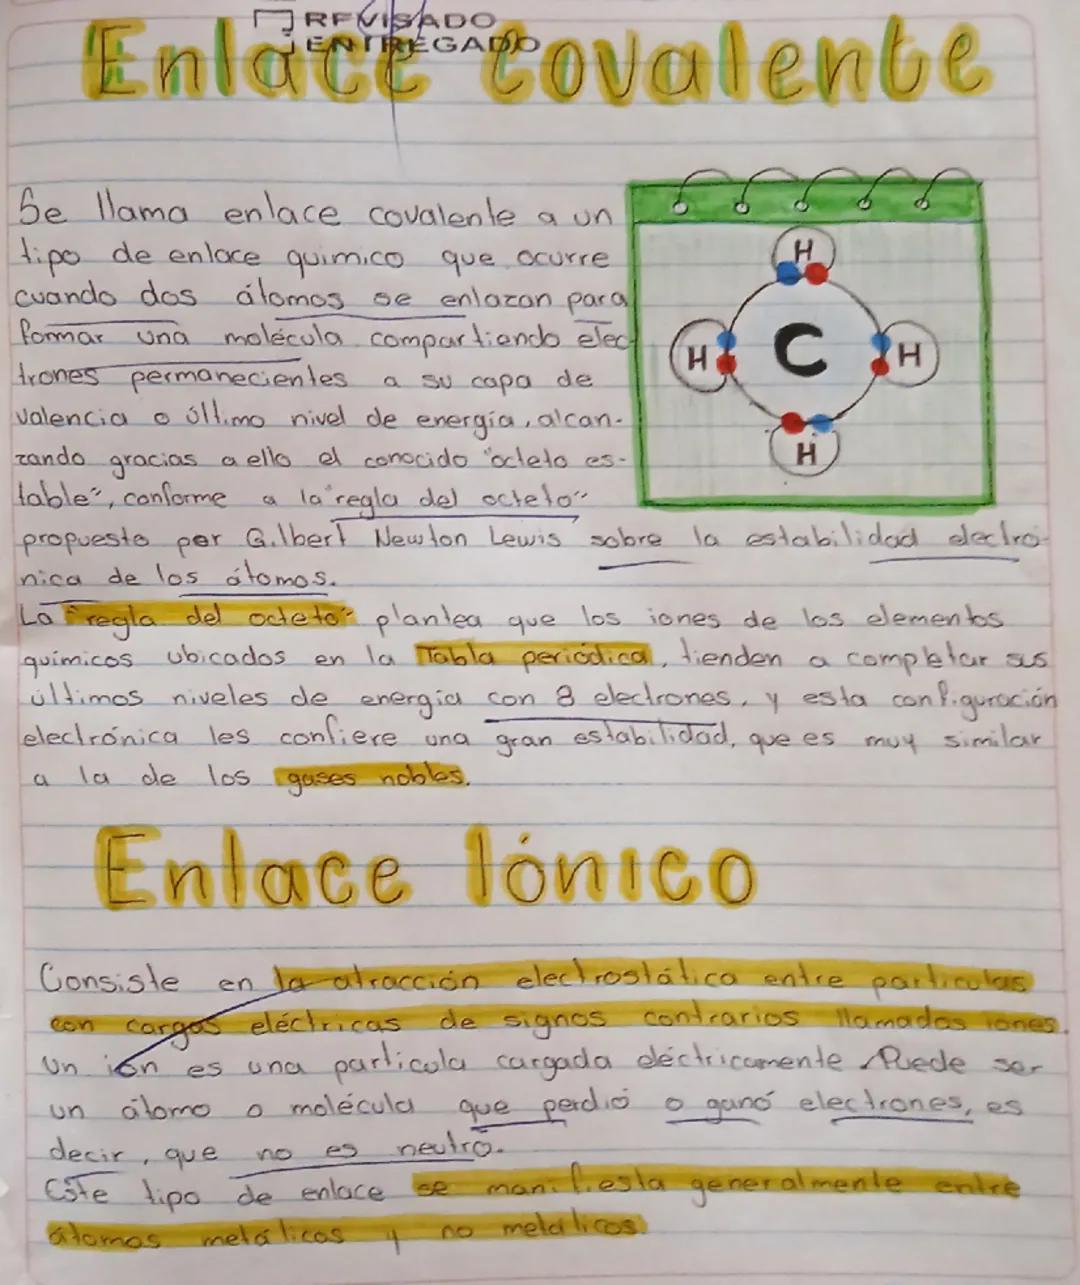 REVISADO
ENTREGADO
Enlace covalente
Se llama enlace covalente a un
tipo de enlace quimico que ocurre
cuando dos átomos se enlazan para
formar una molécula compartiendo elec
trones permanecientes a su capa de
valencia o último nivel de energía, alcan-
zando gracias a ello el conocido "octeto es-
table", conforme a la "regla del octeto"
propuesto por Gilbert Newton Lewis sobre la estabilidad electró-
nica de los átomos.
H
H
C
H
H
La "regla del octeto" plantea que los iones de los elementos
químicos ubicados en la Tabla periódica, tienden a completar sus
últimos niveles de energía con 8 electrones, y esta configuración
electrónica les confiere una gran estabilidad, que es muy similar
a la de los gases nobles.
Enlace Iónico
Consiste en la atracción electrostática entre particulas
con cargas eléctricas de signos contrarios llamadas iones.
Un ión es una particula cargada eléctricamente. Puede ser
un átomo o molécula que perdió o ganó electrones, es
decir, que no es neutro.
Este tipo de enlace se manifiesta generalmente entre
átomos metálicos y no metálicos.